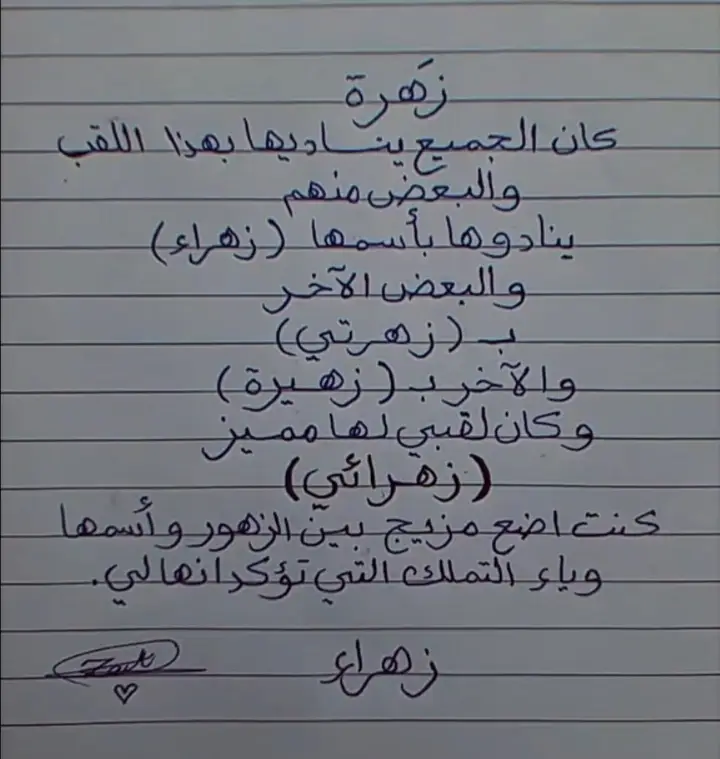 زَهرة
كان الجميع يناديها بهذا اللقب
والبعض منهم
ينادوها بأسمها (زهراء)
والبعض الآخر
ب (زهرتي)
والآخر ب (زهيرة)
وكان لقبي لها مميز
(زهرائي)
كنت اضع مزيج بين الزهور وأسمها
وياء التملك التي تؤكد انها لي.
زهراء